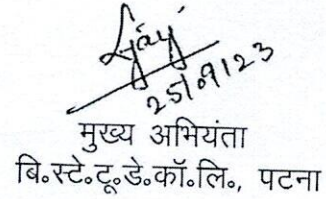 25/09/23
मुख्य अभियंता
बि॰स्टे॰टू॰डे॰कॉ॰लि॰, पटना